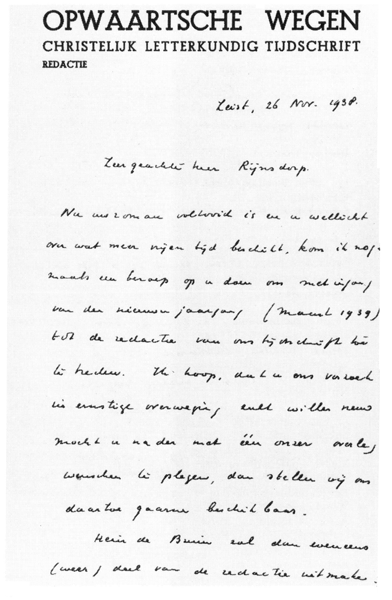 OPWAARTSCHE WEGEN
CHRISTELIJK LETTERKUNDIG TIJDSCHRIFT
REDACTIE
Zeist, 26 Nov. 1938.
Zeergeachte heer Rijnsdorp.
Nu uw roman voltooid is en u wellicht
over wat meer vrijen tijd beschikt, kom ik nog-
maals een beroep op u doen om met ingang
van den nieuwen jaargang (Maart 1939)
tot de redactie van ons tijdschrift toe
te treden. Ik hoop, dat u ons verzoek
in ernstige overweging zult willen nemen
mocht u nader met één onzer overleg
wenschen te plegen, dan stellen wij ons
daartoe gaarne beschikbaar.
Hein de Bruin zal dan eveneens
(weer) deel van de redactie uitmaken.